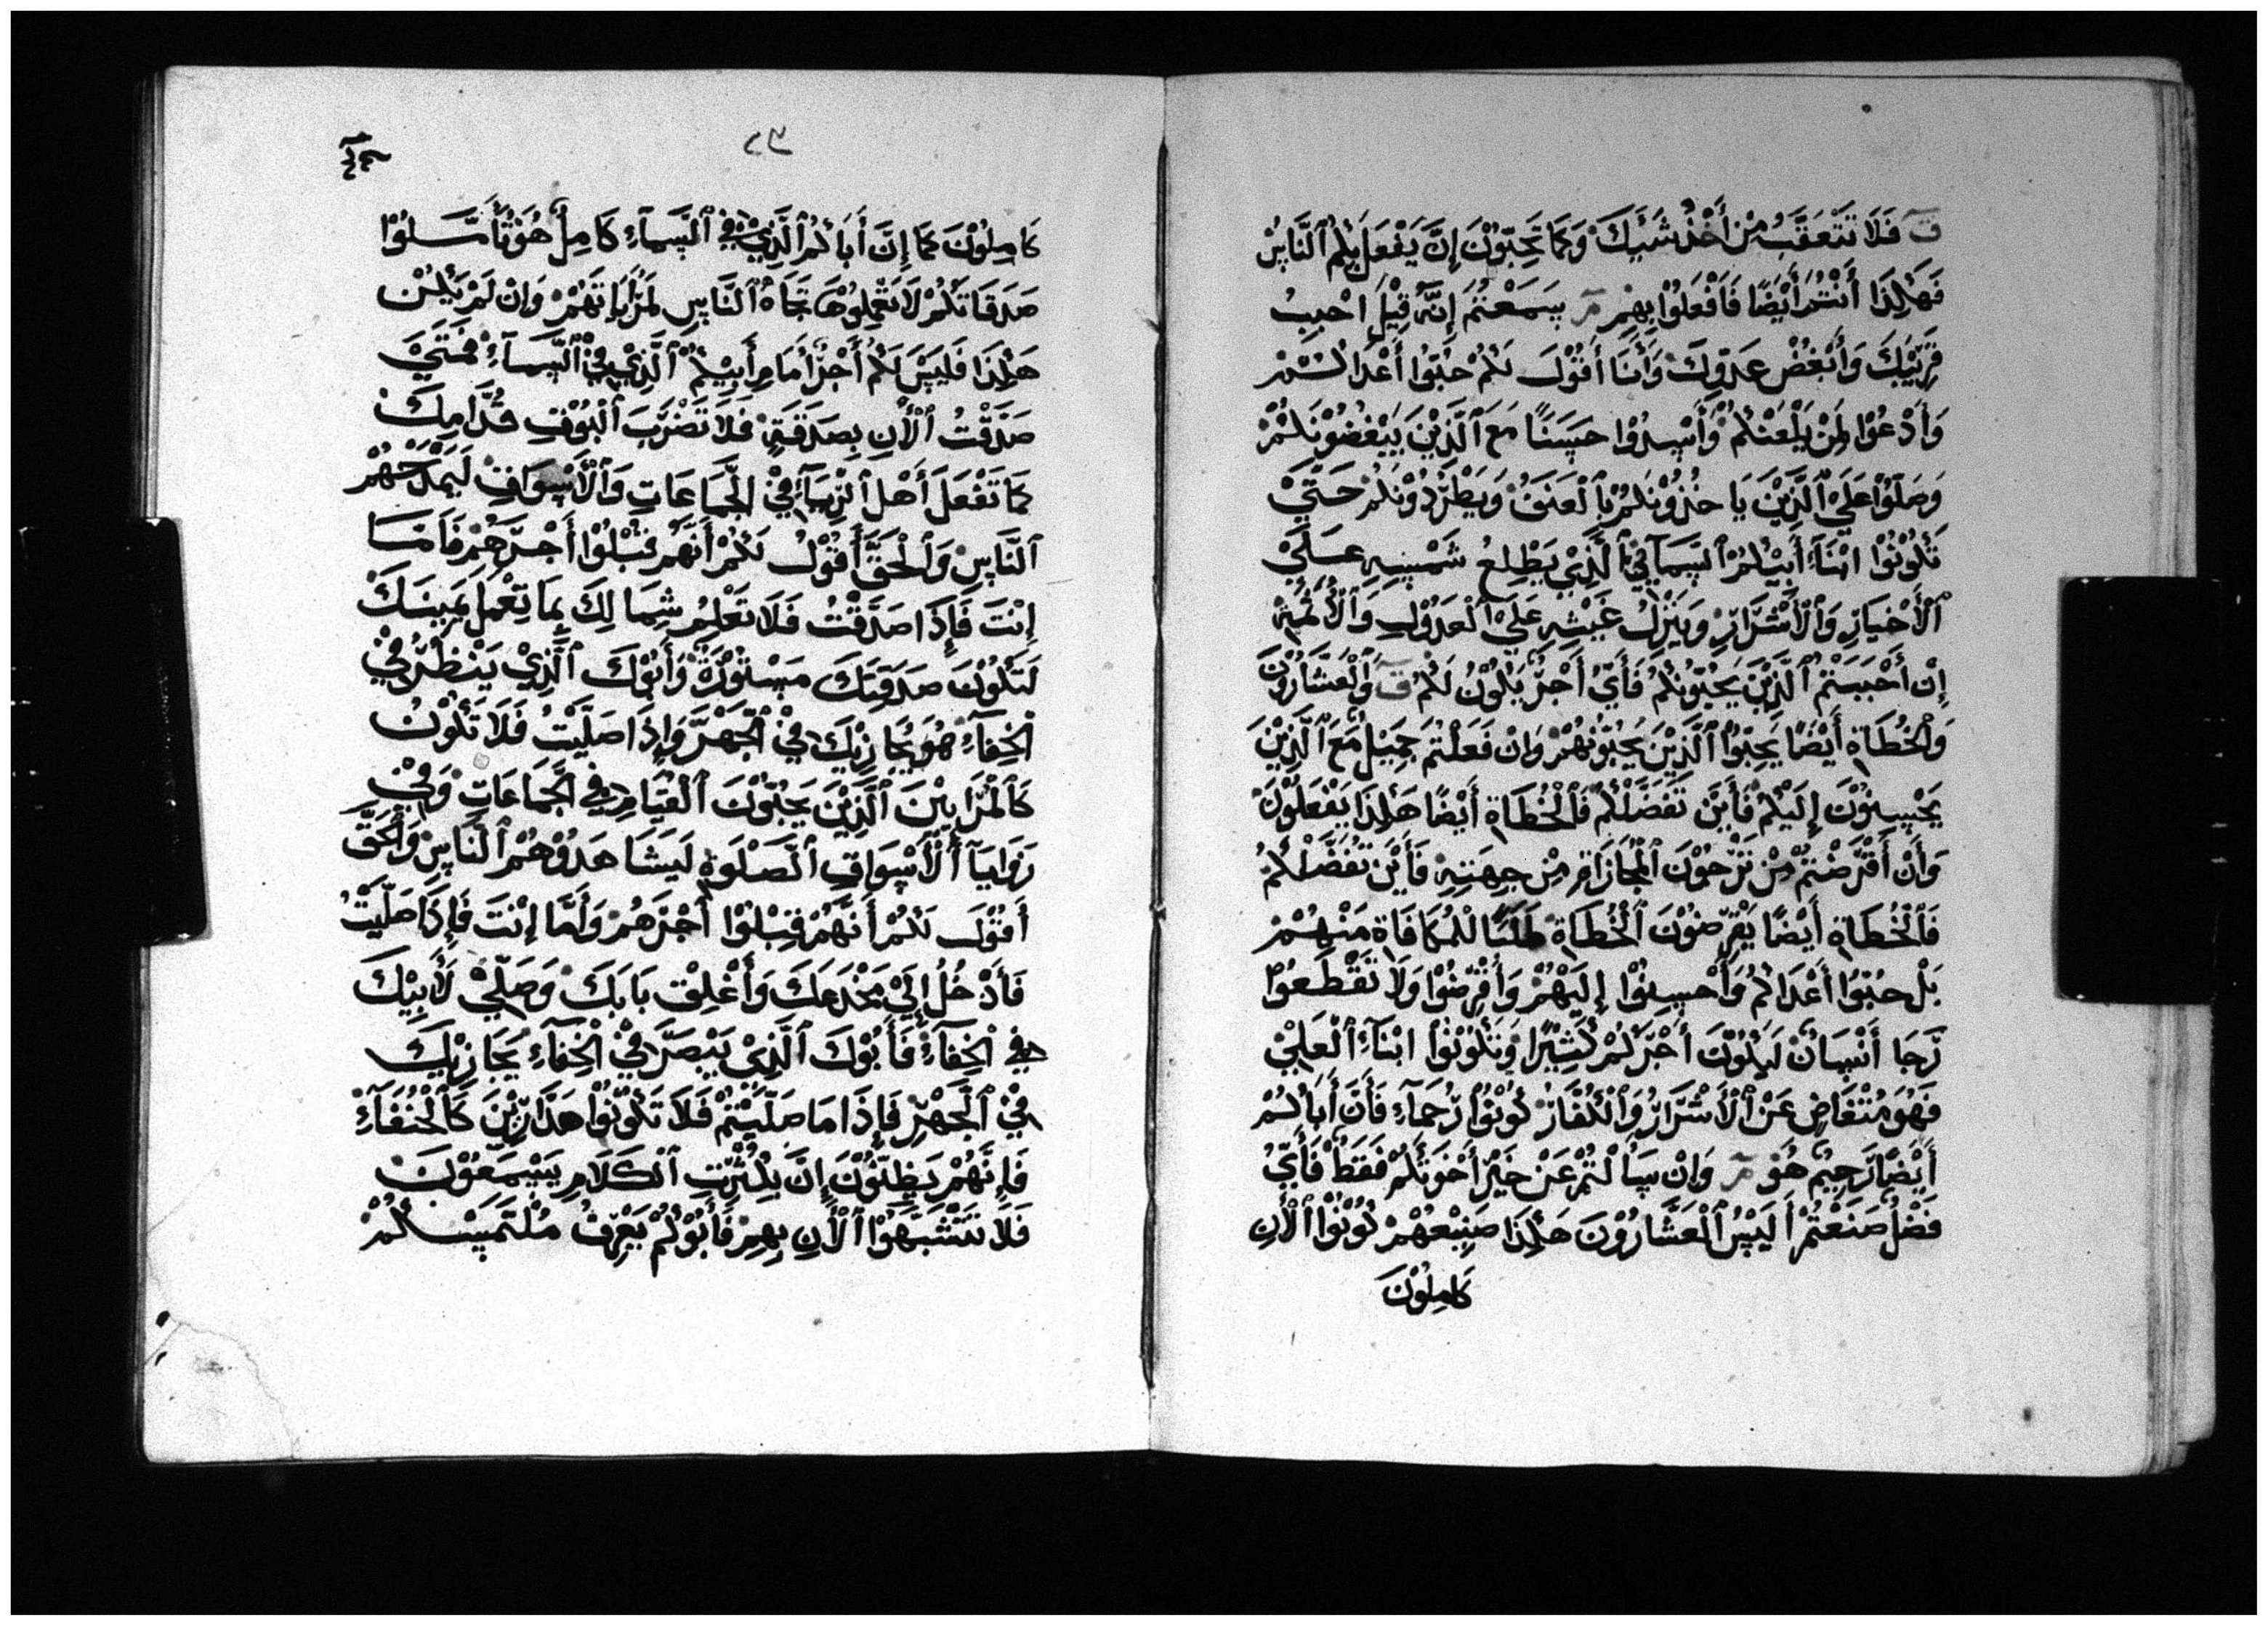 ق فَلَا تَتَعَقَّبُ مِنْ أَخْذُ شَيْئِكَ وَكَمَا تُحِبُّوْنَ إِنَّ يَفْعَلَ بِكُم ٱلنَّاسُ
فَهٰكِذَا أَنْتُمُ أَيْضًا فَٱفْعَلُوْا بِهِمْ مـ سَمَعْتُمَ إِنَّهُ قِيْلَ احْبِبُ
قَرِيْبَكَ وَأَبْغُضْ عَدُوِّكَ وَأَنَا أَقُوْلَ لَكُمْ حُبُّوْا أَعْدَاكُمْ
وَأَدْعُوْا لِمَنْ يَلْعَنْكُمُ وَأَسِدُوْا حَسَنًا مَعَ ٱلَّذِيْنَ يَبْغُضُوْنَكُمْ
وَصَلُّوْا عَلَيْ ٱلَّذِيْنَ يَاخُذُوْنَكُمْ بِٱلْعَنَفُ وَيَطْرُدُوْنَكُمْ حَتَّيْ
تَكُوْنُوْا ابْنَاءِ أَبِيْكُمُ ٱلسَّمَآئِيْ ٱلَّذِيْ يَطْلِعُ شَمْسِهِ عَلَيْ
ٱلْأَخْيَارِ وَٱلْأَشْرَارِ وَيَنْزِلُ غَيْثِهِ عَلَيْ ٱلْعَدُوْلِ وَٱلْأَثَمِةِ
إِنْ أَحْبَبْتُمْ ٱلَّذِيْنَ يُحِبُّوْنَكُمُ فَأَيُّ أَجْرٌ يَكُوْنُ لَكُمْ ق وَٱلْعَشَّارُوْنَ
وَٱلْخُطَاةِ أَيْضًا يَحِبُّوْا ٱلَّذِيْنَ يُحِبُّوْنَهُمْ وَانْ فَعَلْتُمَ جَمِيْلٌ مَعَ ٱلَّذِيْنَ
يَحْسِنُوْنَ إِلَيْكُمْ فَأَيْنَ تَفَضُّلُكُمْ فَٱلْخُطَاةِ أَيْضًا هٰكِذَا يَفْعَلُوْنَ
وَأَنْ أَقْرَضْتُمْ مِنْ تَرْجُوْنَ ٱلْمُجَازَاةِ مِنْ جِهَتِهِ فَأَيْنَ تَفُضَّلُكُمُ
فَٱلْخُطَاةِ أَيْضًا يَقْرِضُوْنَ ٱلْخُطَاةِ طَلَبًا لِلْمُكَافَاةِ مَنْهُمْ
بَلْ حُبُّوْا أَعْدَاكُمُ وَأَحْسِنُوْا إِلَيْهُمْ وَأَقْرِضُوْا وَلَا تَقْطَعُوْا
رَّجَا أَنْسَانٌ لَيَكُوْنَ أَجْرَكُمْ كَثِيْرًا وَتَكُوْنُوْا ابْنَآءِ ٱلْعَلِيْ
فَهُوَ مُتْغَاضٍ عَنْ ٱلْأَشْرَارُ وَٱلْكُفَّارْ كُوْنُوْا رُحَمَآءِ فَأَنَّ أَبَاكُمْ
أَيْضًا رَحِيْمٌ هُوَ مـ وَانْ سَأَلْتُمْ عَنْ خَيْرٍ أَخَوَتَكُمْ فَقَطْ فَأَيُّ
فَضْلٌ صَنَعْتُمْ أَلَيْسُ ٱلْعَشَّارُوْنَ هٰكِذَا صَنِيْعَهُمْ كُوْنُوْا ٱلْأَنِ
كَامِلُوْنَ
٢٣
كَامِلُوْنَ كَمَا إِنَّ أَبَاكُمُ ٱلَّذِيْ فِيْ ٱلسَّمَآءِ كَامِلٌ هُوَ تَأَمَّلُوْا
صَدَقَاتَكُمْ لَا تَعْمِلُوْهَا تَجَاهُ ٱلنَّاسِ لَمُرَايَاتَهُمْ وَانْ لَمْ يَكُنْ
هٰكِذَا فَلَيْسَ لَكُمْ أَجْرٌ أَمَامِ أَبِيْكُمْ ٱلَّذِيْ فِيْ ٱلسَّمَآءِ فَمَتَيْ
صَدَّقْتُ ٱلْأَنِ بِصَدَقَةٍ فَلَا تَضْرَبَ ٱلْبُوْقِ قُدَّامِكَ
كَمَا تَفْعَلَ أَهْلَ ٱلْرِيَآءِ فِيْ الْجَمَاعَاتِ وَٱلْأَسْوَاقِ لَيَمْدَحَهُمْ
ٱلنَّاسِ وَٱلْحَقَّ أَقُوْلُ لَكُمْ أَنَّهُمْ قَبِلُوْا أَجْرَهُمْ فَأَمَّا
إِنْتَ فَإِذَا صَدَّقْتُ فَلَا تَعْلِمُ شِمَالِكَ بِمَا تَعْمِلَ يَمِيْنَكَ
لَتَكُوْنَ صَدَقَتِكَ مَسْتُوْرَةٌ وَأَبُوْكَ ٱلَّذِيْ يَنْظُرُ فِيْ
ٱلْخِفَآءِ هُوَ يُجَازِيْكَ فِيْ ٱلْجَهْرَ وَإِذَا صَلَّيْتُ فَلَا تَكُوْنُ
كَٱلْمُرَايِيْنَ ٱلَّذِيْنَ يَحِبُّوْنَ ٱلْقِيَامِ فِيْ الْجَمَاعَاتِ وَفِيْ
زَوَايَآ ٱلْأَسْوَاقِ ٱلصَّلْوَةِ لَيَشَاهَدُوْهُمْ ٱلنَّاسِ وَأَلْحَقَّ
أَقُوْلَ لَكُمْ أَنَّهُمْ قَبِلُوْا أَجْرَهُمْ وَأَمَّا إِنْتَ فَإِذَا صَلَّيْتُ
فَأَدْخُلُ إِلَيْ مَخْدَعِكَ وَأَغْلِقْ بَابَكَ وَصَلِّيْ لَأَبِيْكَ
فِيْ ٱلْخِفَآءِ فَأَبُوْكَ ٱلَّذِيْ يَبْصَرَ فِيْ ٱلْخِفَآءِ يُجَازِيْكَ
فِيْ ٱلْجَهْرِ فَإِذَا مَا صَلَّيْتُمْ فَلَا تَكُوْنُوْا هَذَّارِيْنَ كَٱلْحُنَفَآءِ
فَإِنَّهُمْ يَظِنُّوْنَ إِنَّ بِكُثْرَتِ ٱلْكَلَامِ يَسْمَعُوْنَ
فَلَا تَتَشَبَّهُوْا ٱلْأَنِ بِهِمْ فَأَبُوْكُمْ يَعْرِفُ مُلْتَمَسَكُمْ